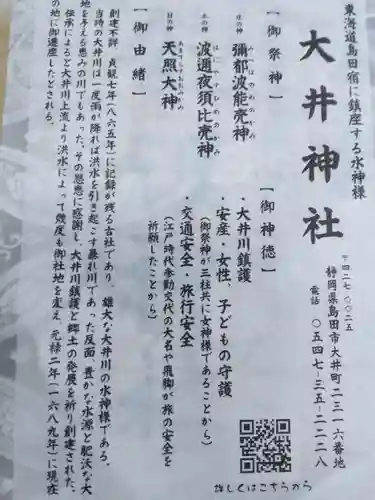 東海道島田宿に鎮座する水神様
大井神社
〒四二七-〇〇二五
静岡県島田市大井町二三一六番地
電話 〇五四七-三五-二二二八
【御祭神】
水の神 彌都波能売神 みづはのめのかみ
土の神 波邇夜須比売神 はにやすひめのかみ
日の神 天照大神 あまてらすおおみかみ
【御神徳】
・大井川鎮護
・安産・女性、子どもの守護
(御祭神が三柱共に女神様であることから)
・交通安全・旅行安全
(江戸時代参勤交代の大名や飛脚が旅の安全を
祈願したことから)
【御由緒】
創建不詳 貞観七年(八六五年)に記録が残る古社であり、雄大な大井川の水神様である。
当時の大井川は一度雨が降れば洪水を引き起こす暴れ川であった反面、豊かな水源と肥沃な大
地を与える恵みの川でもあった。その恩恵に感謝し、大井川鎮護と郷土の発展を祈り創建された。
伝承によると大井川上流より洪水によって幾度も御社地を変え、元禄二年(一六八九年)に現在
の地に御遷座したとされる。
詳しくはこちらから